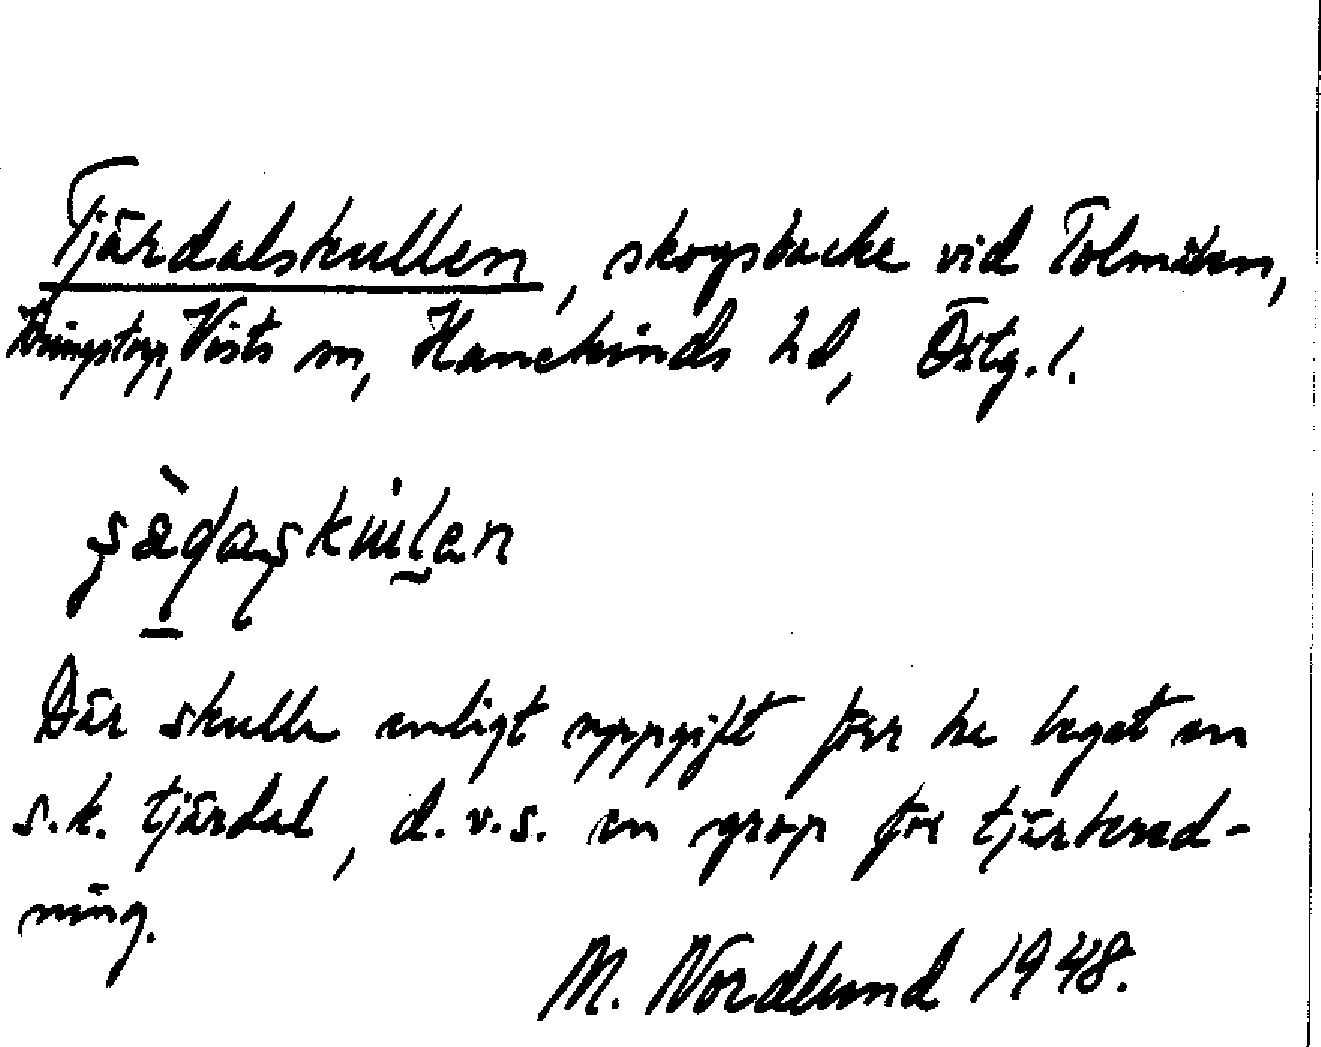 Tjärdalskullen, skogsbacke vid Tolmåsen,
Bringstorp, Vists sn, Hanekinds hd, Östg. l.
Där skulle enligt uppgift förr ha legat en
s.k. tjärdal, d.v.s. en grop för tjärbered-
ning.
M. Nordlund 1948.